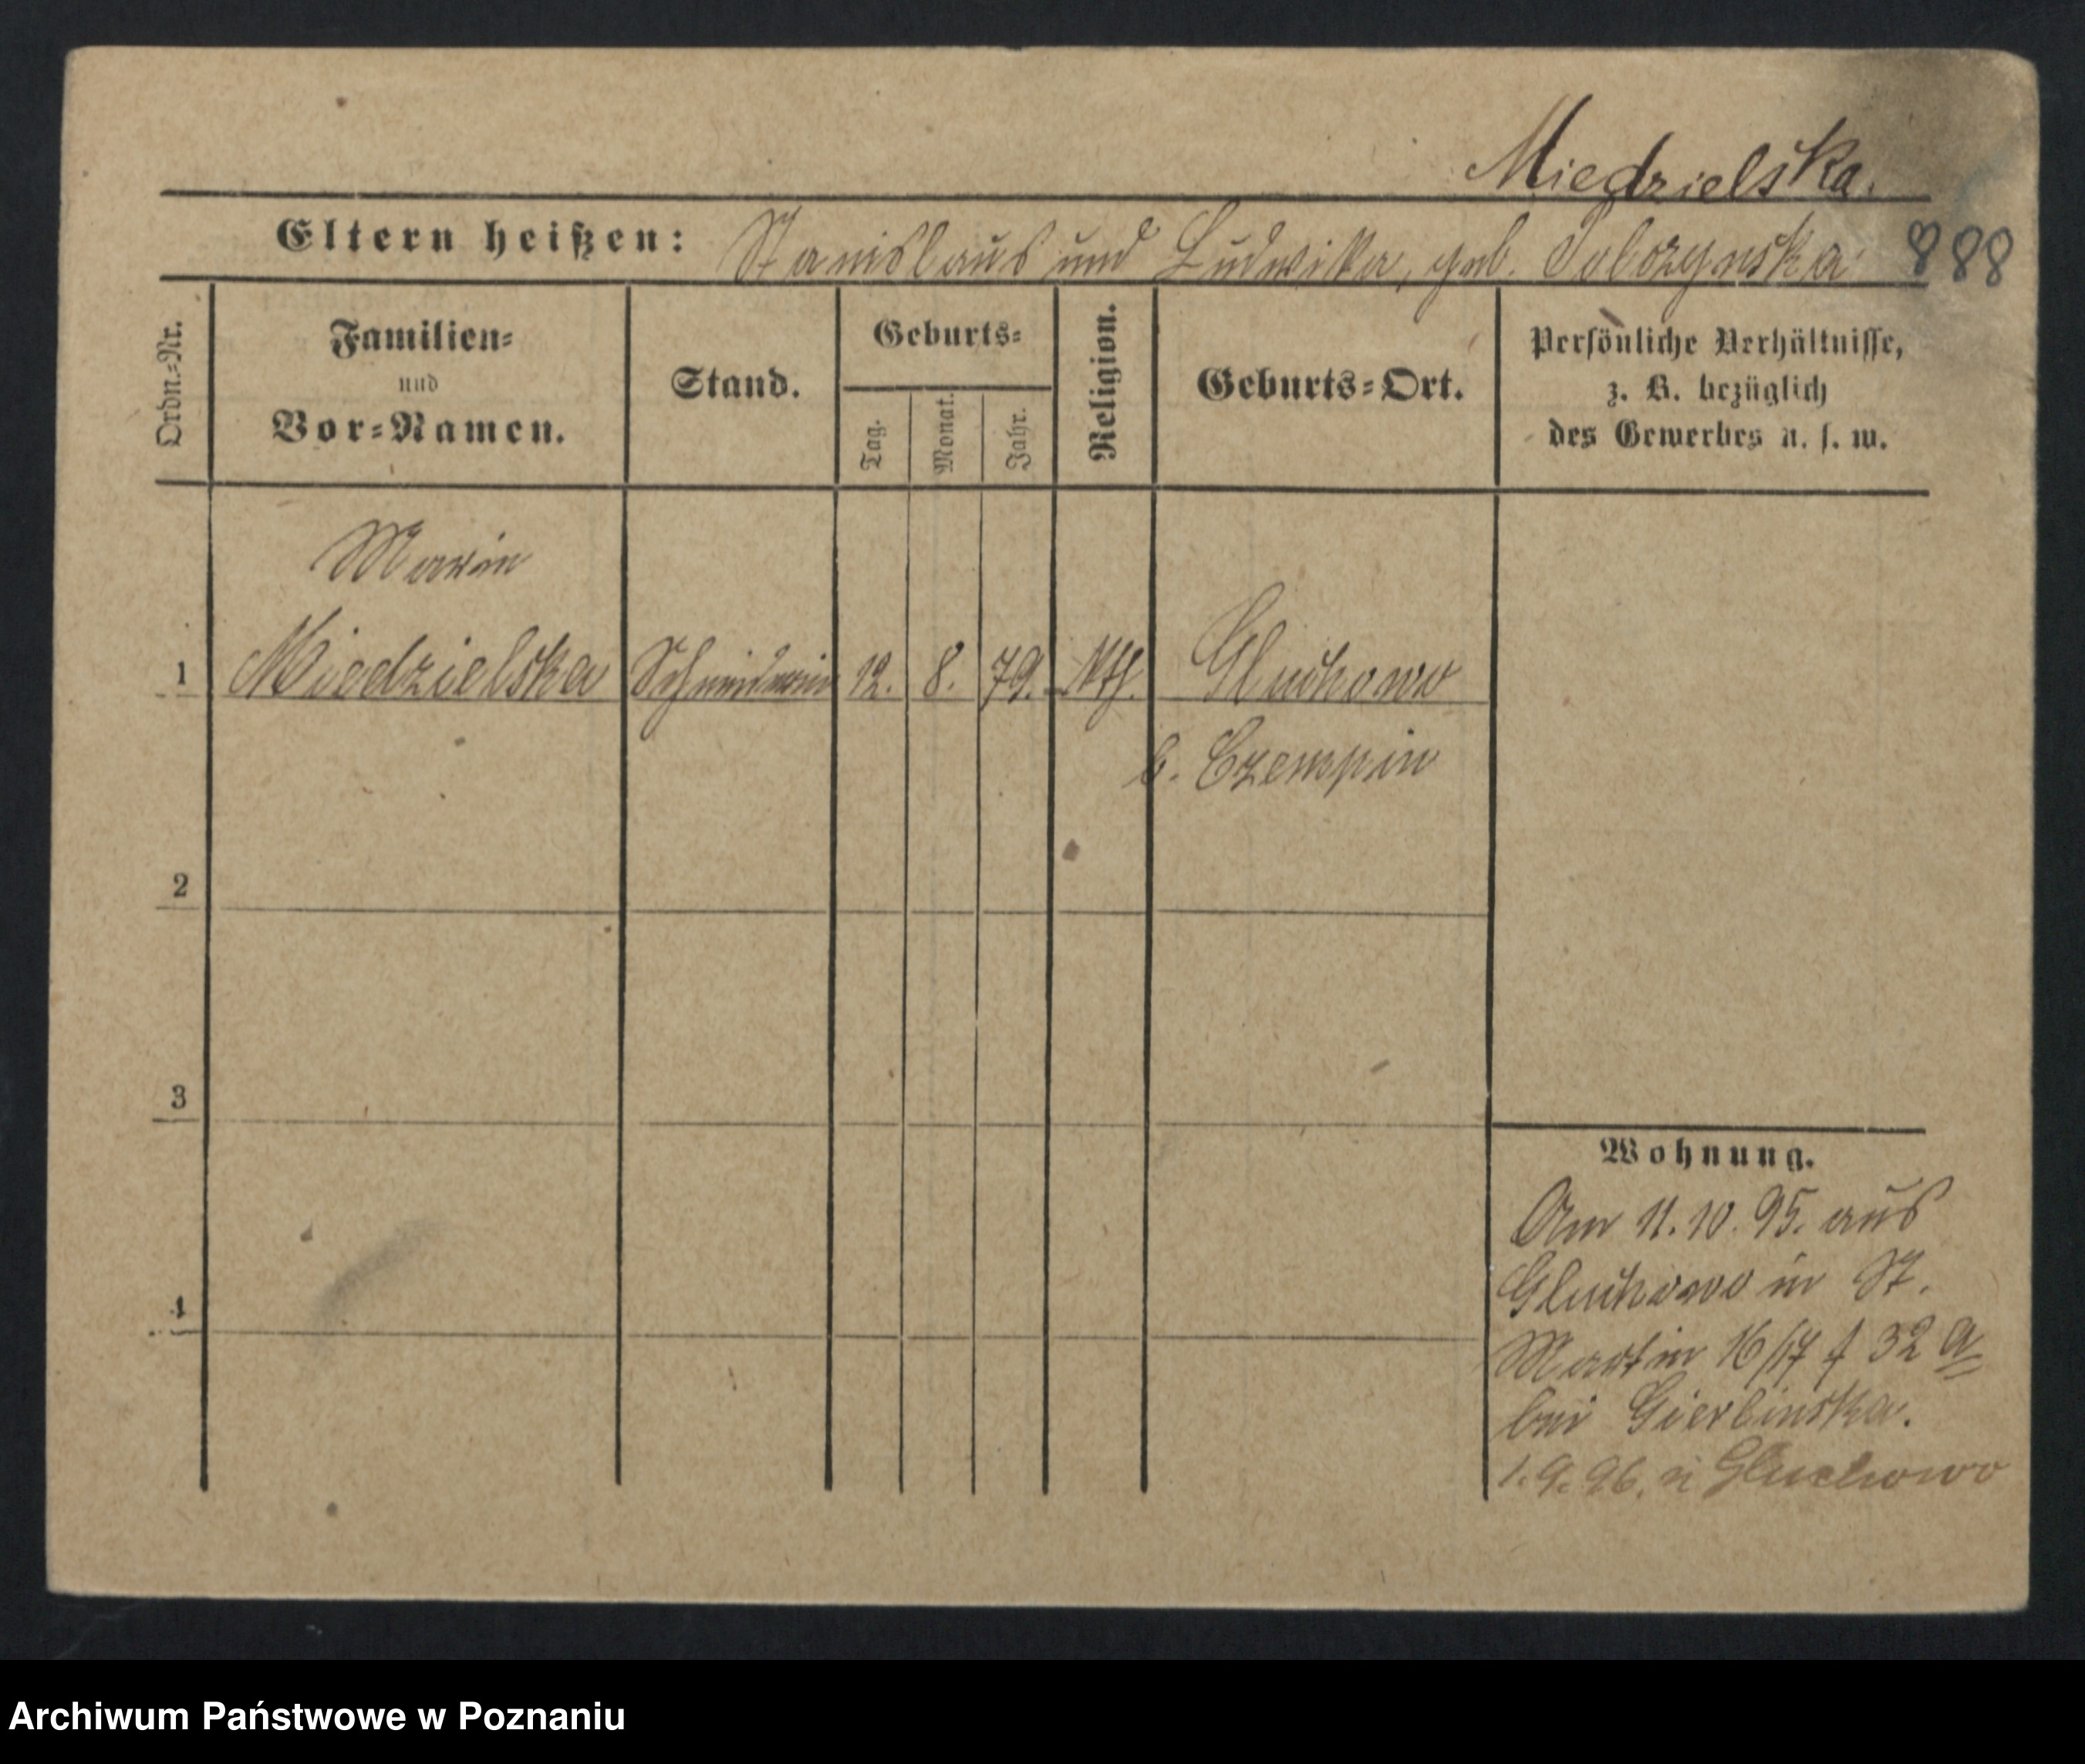 Miedzielska.
Eltern heißen: Stanislaus und Ludwika, geb. Sobczynska 888
Ordn.-Nr.
Familien-
und
Vor-Namen.
Stand.
Geburts-
Tag.
Monat.
Jahr.
Religion.
Geburts-Ort.
Persönliche Verhältnisse,
z. B. bezüglich
des Gewerbes u. s. w.
Marie
1 Miedzielska Schneiderin 12. 8. 79. kth. Gluchowo
b. Czempin
2
3
4
Wohnung.
Am 11.10.95. aus
Gluchowo in St.
Martin 16/17 32 a
bei Gierlinska.
1.9.96. n Gluchowo
Archiwum Państwowe w Poznaniu